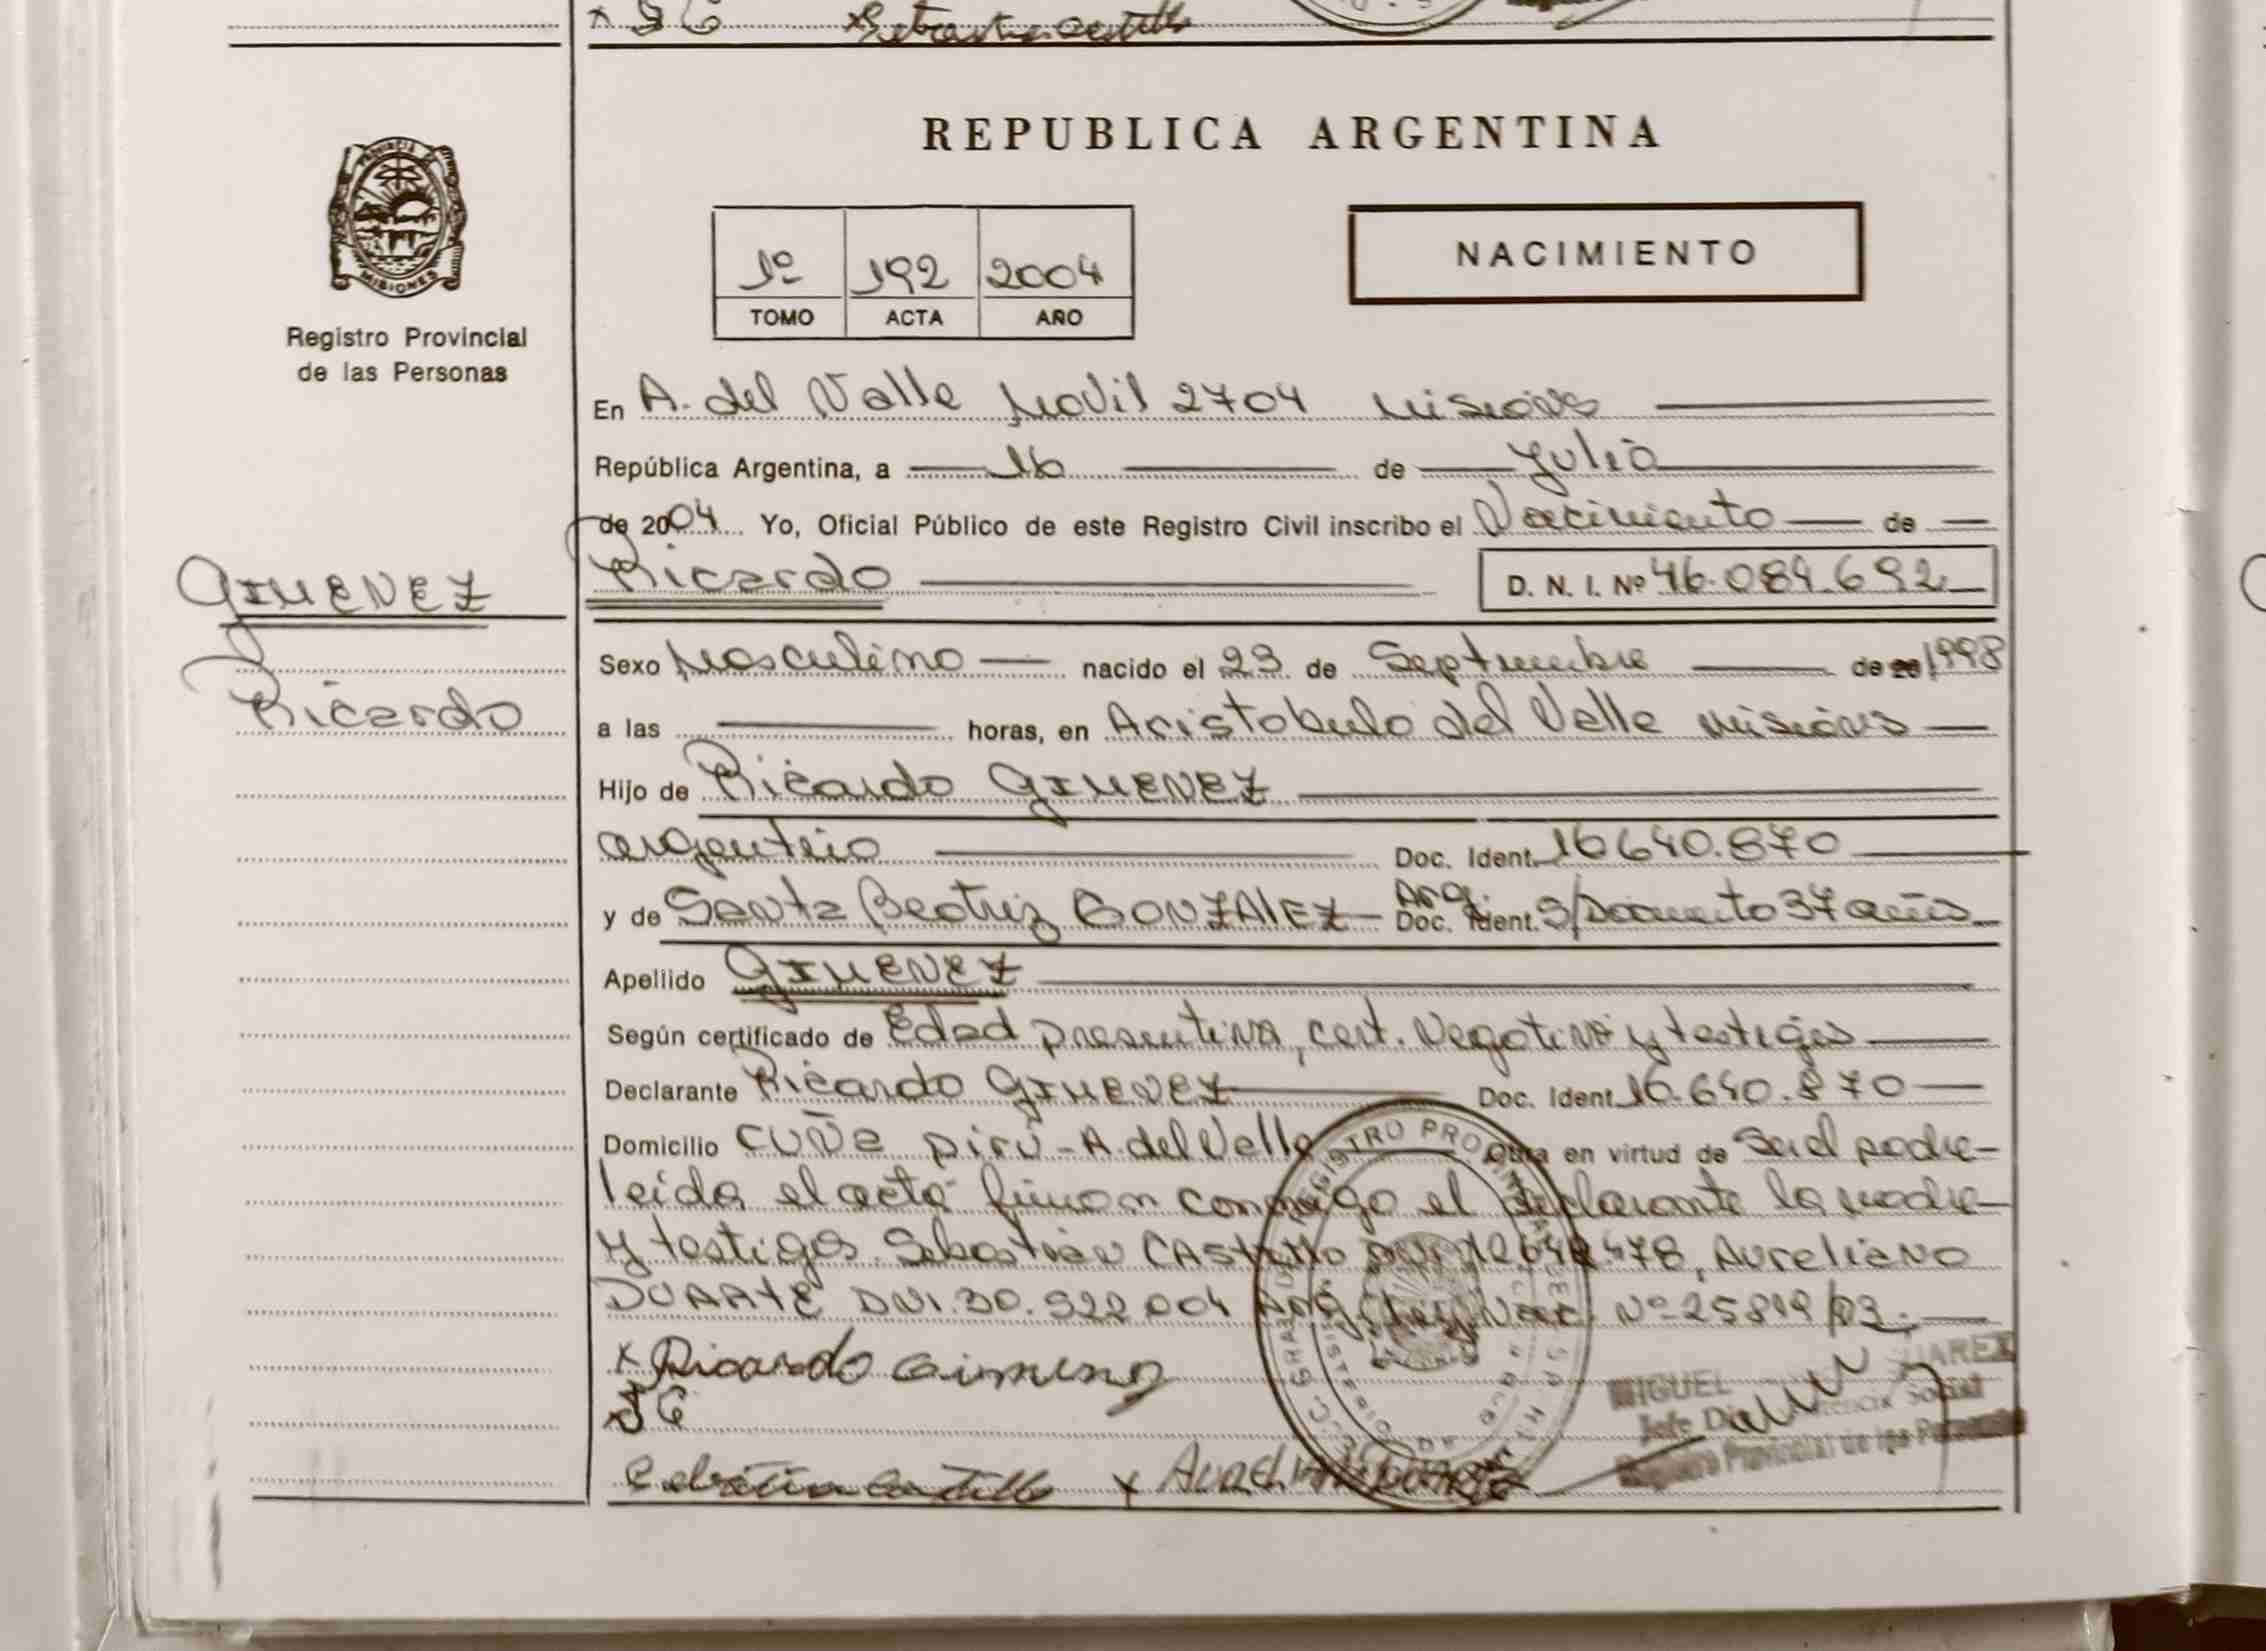 Sebastian Castillo
REPUBLICA ARGENTINA
PROVINCIA DE
MISIONES
Registro Provincial
de las Personas
1º 192 2004
TOMO ACTA AÑO
NACIMIENTO
En A. del Valle Movil 2704 Misiones
República Argentina, a 16 de Julio
de 2004 Yo, Oficial Público de este Registro Civil inscribo el Nacimiento de
Ricardo D. N. I. Nº 46.084.692
GIMENEZ
Ricardo
Sexo Masculino nacido el 23 de Septiembre de 20 1998
a las horas, en Aristobulo del Valle Misiones
Hijo de Ricardo GIMENEZ
argentino Doc. Ident. 16640.870
y de Santa Beatriz GONZALEZ Arg. Doc. Ident. S/Documento 37 años
Apellido GIMENEZ
Según certificado de Edad presuntiva, cert. Negativa y testigos
Declarante Ricardo GIMENEZ Doc. Ident. 16.640.870
Domicilio CUÑA pirú - A. del Valle Obra en virtud de Ser el padre
leida el acta firman conmigo el declarante la madre
y testigos Sebastian CASTILLO DNI 12.642.478, Aureliano
DUARTE DNI. 30.922.004 Arg. Ley Nac. Nº 25819/03.
x Ricardo Gimenez
x S G
Sebastian Castillo x AURELIANO DUARTE
REGISTRO PROVINCIAL DE
MIGUEL SUAREZ
Jefe Social
Registro Provincial de las Personas